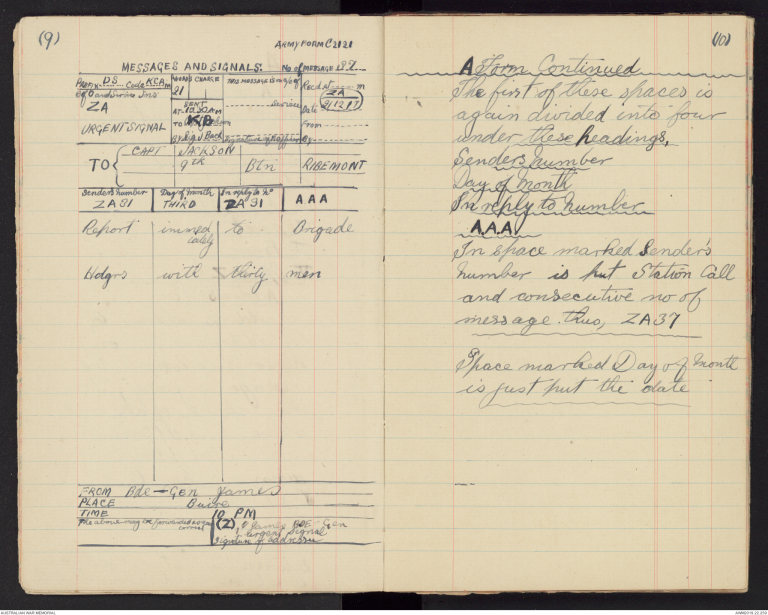 (9)
ARMY FORM C 2121
MESSAGES AND SIGNALS.
No of MESSAGE
PREFIX DS Code KCA m
WORDS CHARGE
THIS MESSAGE IS on a/c of
21
Recd At m
ZA
SENT
Service
Date 2/12/17
ZA
AT 10.30 A m
From
URGENT SIGNAL
TO KB
By
TO CAPT JACKSON
9th Btn RIBEMONT
Senders number Day of Month In reply to No AAA
ZA 31 THIRD ZA 31
Report immed to Brigade
iately
Hdqrs with thirty men
FROM Bde-Gen James
PLACE Buire
TIME 10 PM
The above may be forwarded as now correct
(Z) James BDE-Gen
Urgent Signal
Signature of addresse
(10)
A Form Continued
The first of these spaces is
again divided into four
under these headings,
Senders number
Day of Month
In reply to number
A.A.A.
In space marked Sender's
number is put Station Call
and consecutive no of
message thus, ZA 37
Space marked Day of Month
is just put the date
AUSTRALIAN WAR MEMORIAL